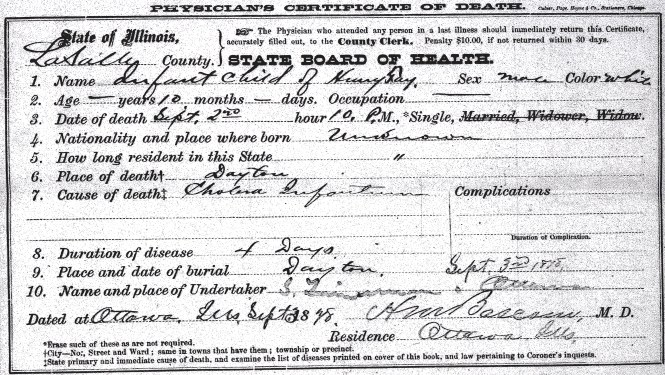 PHYSICIAN'S CERTIFICATE OF DEATH.
State of Illinois,
LaSalle County.
☞ The Physician who attended any person in a last illness should immediately return this Certificate, accurately filled out, to the County Clerk. Penalty $10.00, if not returned within 30 days.
STATE BOARD OF HEALTH.
1. Name Infant Child of Henry Sex male Color white
2. Age — years 10 months — days. Occupation —
3. Date of death Sept. 2nd hour 10 P.M. *Single, Married, Widower, Widow.
4. Nationality and place where born Unknown
5. How long resident in this State "
6. Place of death† Dayton
7. Cause of death‡ Cholera Infantum Complications
Duration of Complication.
8. Duration of disease 4 Days.
9. Place and date of burial Dayton. Sept. 3rd 1878,
10. Name and place of Undertaker S. Zimmerman, Ottawa
Dated at Ottawa Ills Sept 3 1878. H M Bascom, M. D.
Residence Ottawa Ills.
*Erase such of these as are not required.
†City—No., Street and Ward; same in towns that have them; township or precinct.
‡State primary and immediate cause of death, and examine the list of diseases printed on cover of this book, and law pertaining to Coroner's inquests.